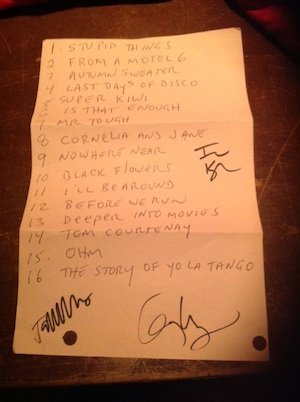 1. STUPID THINGS
2 FROM A MOTEL 6
3. AUTUMN SWEATER
4 LAST DAYS OF DISCO
5 SUPER KIWI
6 IS THAT ENOUGH
7 MR TOUGH
8 CORNELIA AND JANE
9 NOWHERE NEAR
10 BLACK FLOWERS
11 I'LL BE AROUND
12 BEFORE WE RUN
13 DEEPER INTO MOVIES
14 TOM COURTENAY
15. OHM
16. THE STORY OF YO LA TANGO